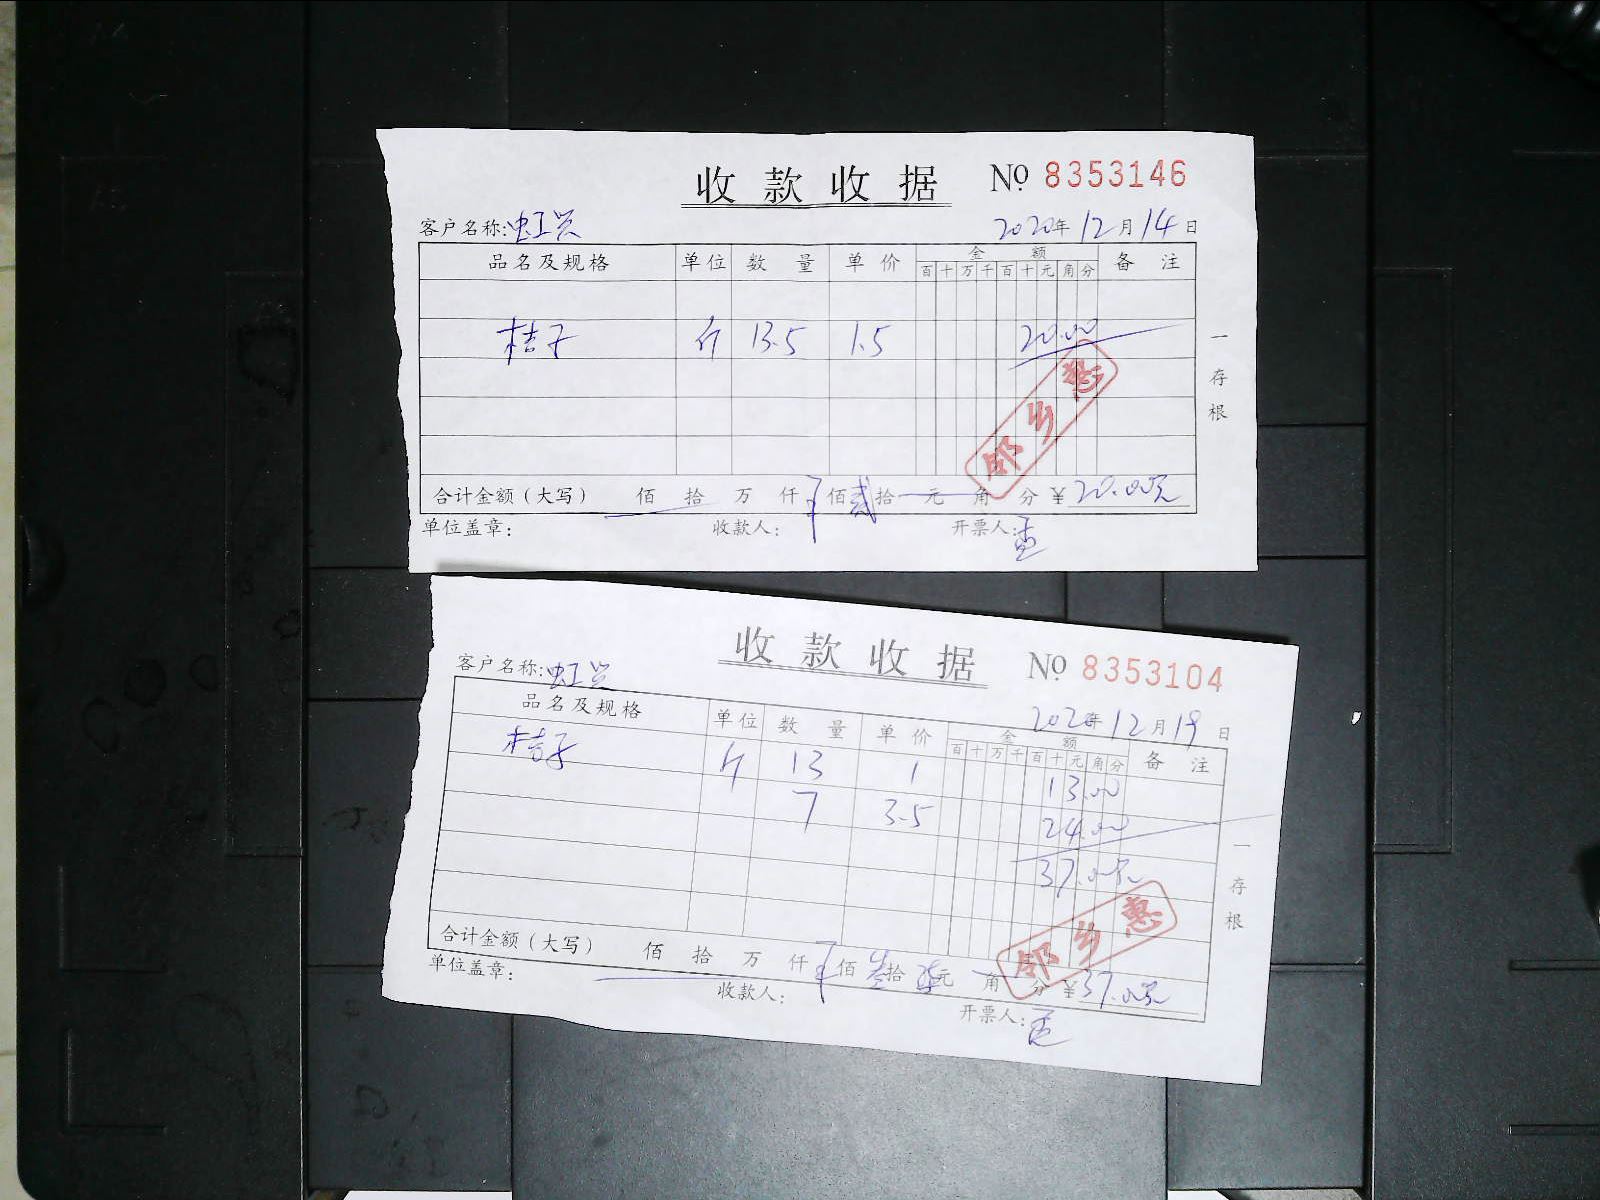 收款收据 № 8353146
客户名称:虹兴 2020年12月14日
品名及规格 单位 数量 单价 金额 备注
百十万千百十元角分
桔子 斤 13.5 1.5 20.00
一存根
邻乡惠
合计金额(大写) 佰 拾 万 仟 佰贰拾 元 角 分 ¥20.00元
单位盖章: 收款人: 开票人:
收款收据 № 8353104
客户名称:虹兴 2020年12月19日
品名及规格 单位 数量 单价 金额 备注
百十万千百十元角分
桔子 斤 13 1 13.00
7 3.5 24.00
37.00元
一存根
邻乡惠
合计金额(大写) 佰 拾 万 仟 佰叁拾柒元 角 分 ¥37.00元
单位盖章: 收款人: 开票人: